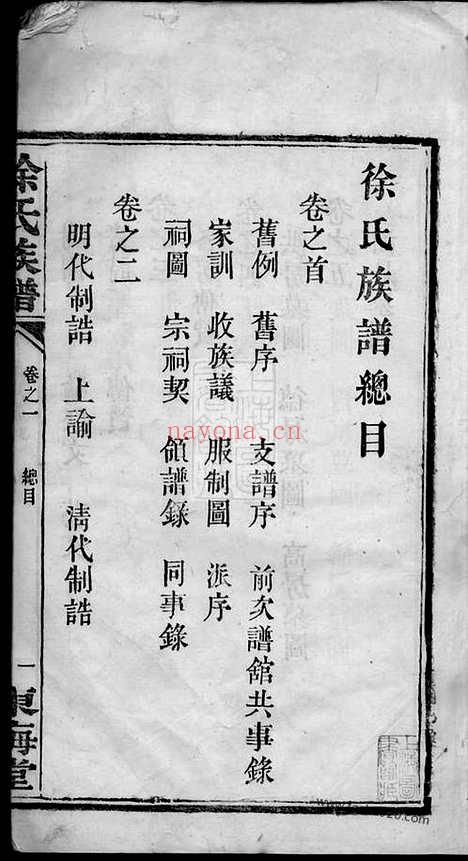 徐氏族譜總目
卷之首
舊例 舊序 支譜序 前次譜舘共事錄
家訓 收族議 服制圖 派序
祠圖 宗祠契 領譜錄 同事錄
卷之二
明代制誥 上諭 清代制誥
徐氏族譜
卷之一
總目
一
東海堂
nayona.cn